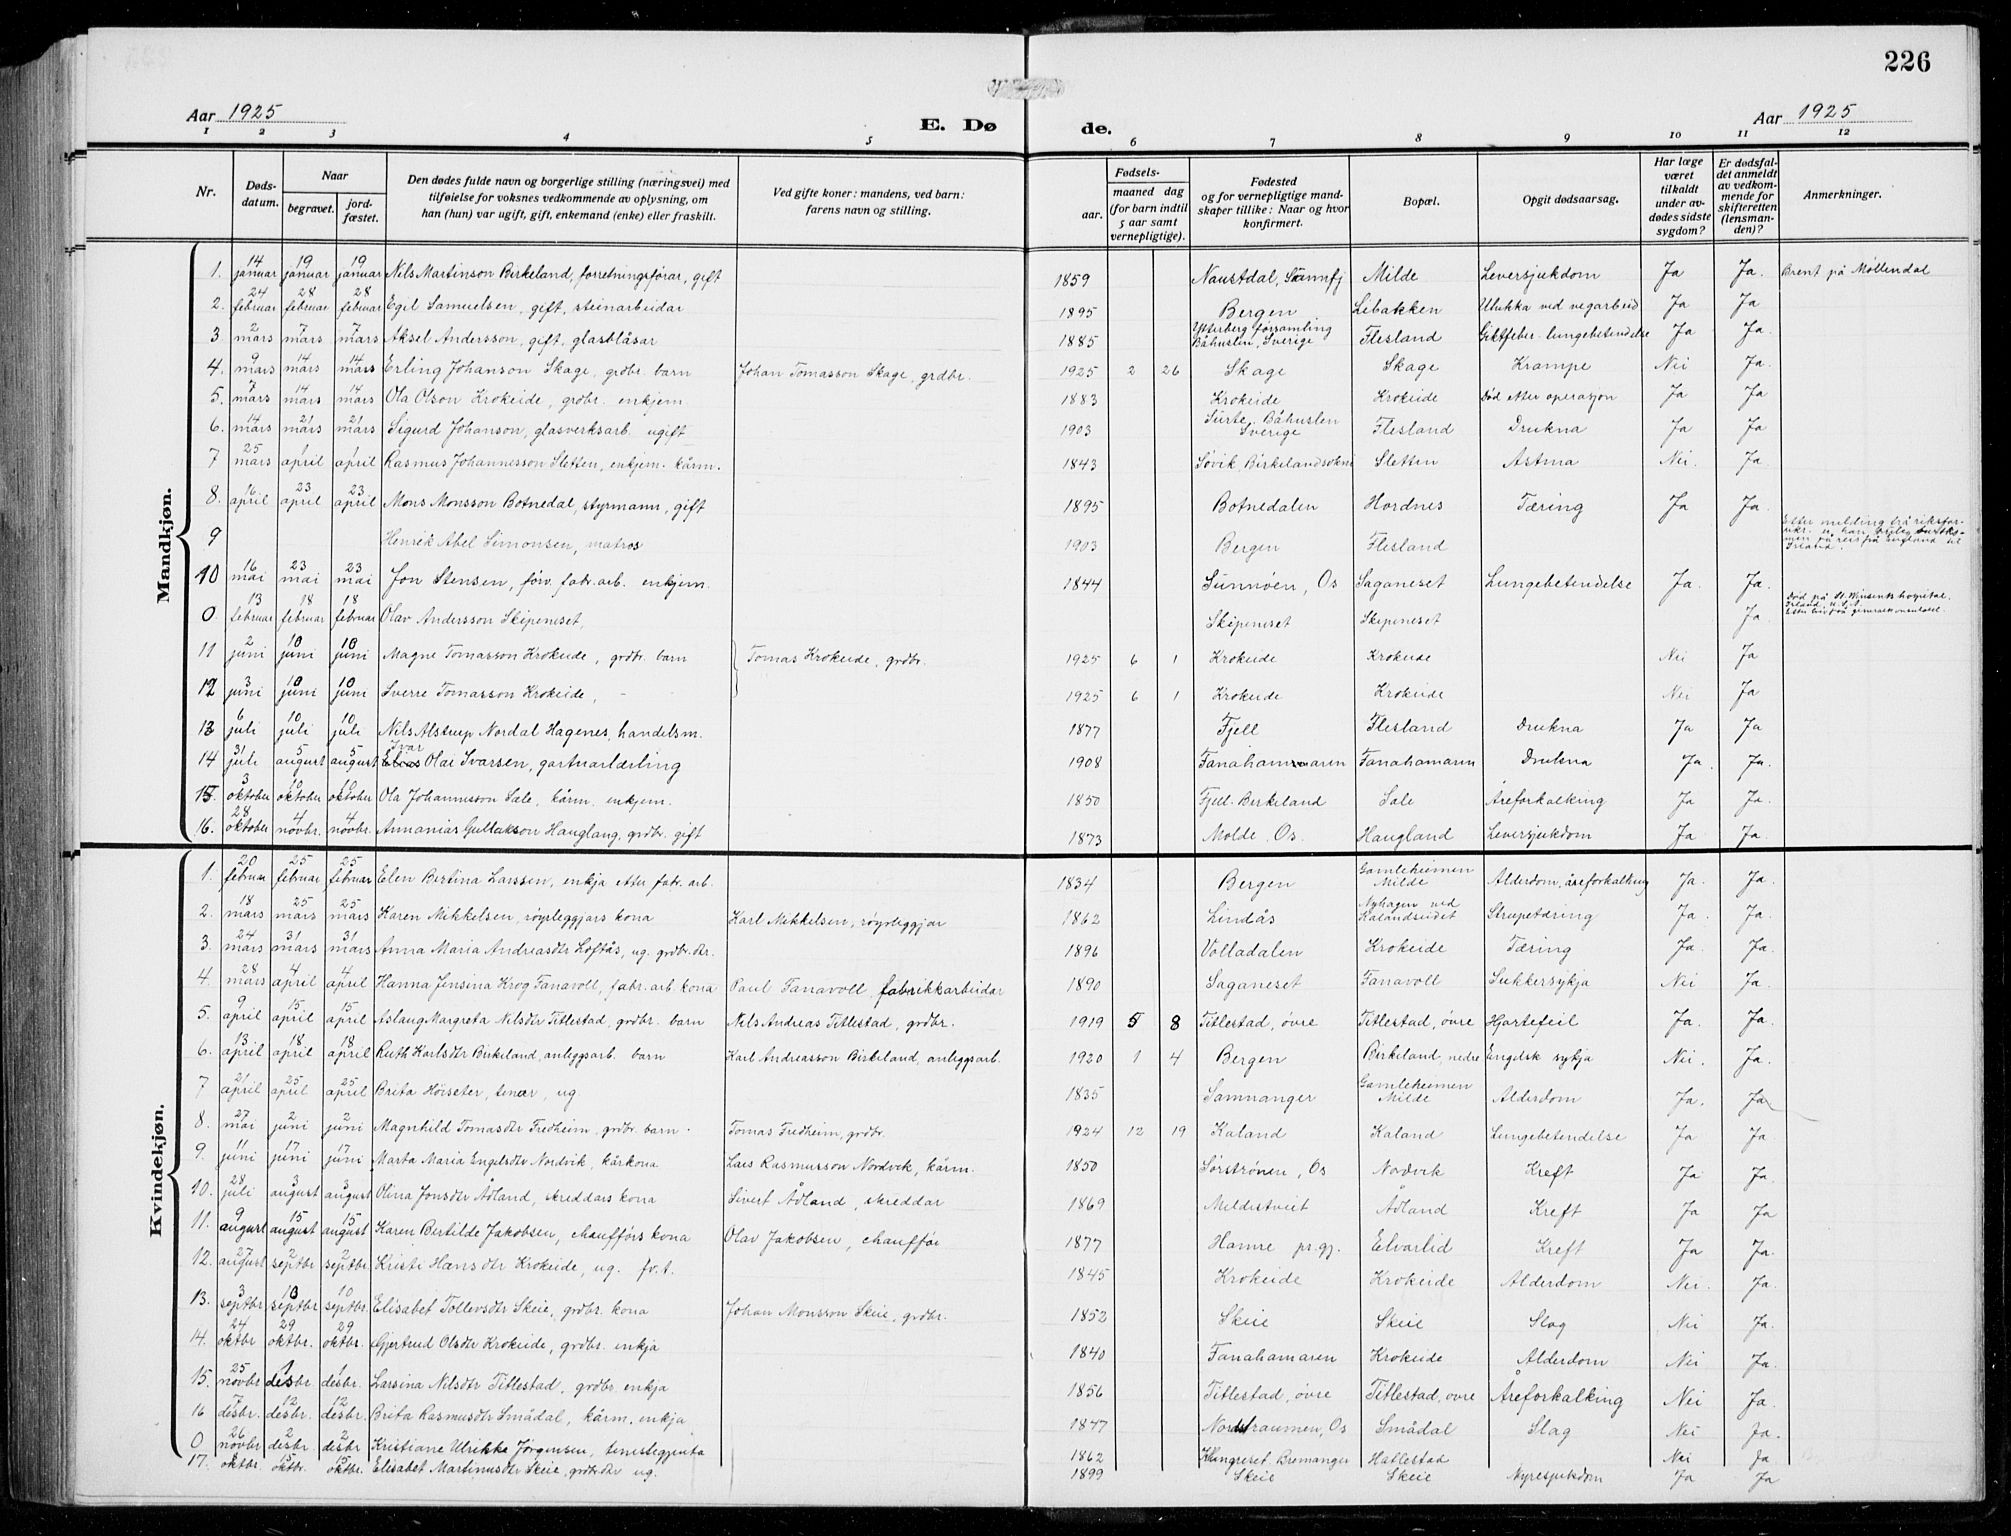 226
Aar 1925
E. Døde.
Aar 1925
1 2 3 4 5 6 7 8 9 10 11 12
Nr.
Døds-datum.
Naar
begravet.
jord-fæstet.
Den dødes fulde navn og borgerlige stilling (næringsvei) med tilføielse for voksnes vedkommende av oplysning, om han (hun) var ugift, gift, enkemand (enke) eller fraskilt.
Ved gifte koner: mandens, ved barn: farens navn og stilling.
Fødsels-
aar.
maaned dag
(for barn indtil 5 aar samt vernepligtige).
Fødested og for vernepligtige mandskaper tillike: Naar og hvor konfirmert.
Bopæl.
Opgit dødsaarsag.
Har læge været tilkaldt under avdødes sidste sygdom?
Er dødsfaldet anmeldt av vedkommende for skifteretten (lensmanden)?
Anmerkninger.
Mandkjøn.
1. 14 januar 19 januar 19 januar Nils Martinson Birkeland, forretningsförar, gift 1859 Naustdal, Sunnfj Milde Leversjukdom Ja Ja. Brent på Møllendal
2. 24 februar 28 februar 28 februar Egil Samuelsen, gift, steinarbeidar 1895 Bergen Libakken Ulukka ved vegarbeid Ja Ja
3 2 mars 7 mars 7 mars Aksel Andersson, gift, glasblåsar 1885 Ytterberg församling Båhuslen, Sverige Flesland Giktfeber. lungebetendelse Ja Ja.
4. 9 mars 14 mars 14 mars Erling Johanson Skage, grdbr. barn Johan Tomasson Skage, grdbr. 1925 2 26 Skage Skage Krampe Nei Ja.
5. 7 mars 14 mars 14 mars Ola Olson Krokeide, grdbr. enkjem. 1883 Krokeide Krokeide Død etter operasjon Ja Ja
6. 14 mars 21 mars 21 mars Sigurd Johanson, glasverksarb. ugift 1903 Surte, Båhuslen Sverige Flesland Drukna Ja Ja
7 25 mars 1 april 1 april Rasmus Johannesson Sletten, enkjem. kårm. 1843 Søvik Birkelandsokn Sletten Astma Nei. Ja.
8. 16 april 23 april 23 april Mons Monsson Botnedal, styrmann, gift 1895 Botnedalen Hordnes Tæring Ja Ja.
9 Henrik Abel Simonsen, matros 1903 Bergen Flesland Etter melding frå riksfor-
10 16 mai 23 mai 23 mai Jon Stensen, förv. fabr.arb. enkjem. 1844 Sunnöen, Os Saganeset Lungebetendelse Ja. Ja.
0. 13 februar 18 februar 18 februar Olav Andersson Skipeneset, Skipeneset Skipeneset Ja. Død på St. Winsents hospital,
11 2 juni 10 juni 10 juni Magne Tomasson Krokeide, grdbr. barn Tomas Krokeide, grdbr. 1925 6 1 Krokeide Krokeide Nei Ja
12 3 juni 10 juni 10 juni Sverre Tomasson Krokeide, - 1925 6 1 Krokeide Krokeide Nei Ja
13 6 juli 10 juli 10 juli Nils Alstrup Nordal Hagenes, handelsm. 1877 Fjell Flesland Drukna Ja Ja
14 31 juli 5 august 5 august Ivar Olai Ivarsen, gartnarlærling 1908 Fanahammaren Fanahamaren Drukna Ja. Ja.
15 3 oktober 10 oktober 10 oktober Ola Johannesson Sale, kårm. enkjem. 1850 Fjell. Birkeland Sale Åreforkalking Ja Ja.
16. 28 oktober 4 novbr. 4 novbr. Annanias Gullakson Hauglang, grdbr. gift 1873 Molde. Os. Haugland Leversjukdom Ja Ja.
Kvindekjøn.
1. 20 februar 25 februar 25 februar Elen Bertina Larssen, enkja etter fabr. arb. 1834 Bergen Gamleheimen Milde Alderdom, åreforkalking Ja. Ja.
2. 18 mars 25 mars 25 mars Karen Mikkelsen, røyrleggjars kona Karl Mikkelsen, røyrleggjar 1862 Lindås Nyhagen ved Kalandseidet Strupetæring Ja. Ja.
3. 24 mars 31 mars 31 mars Anna Maria Andreasdtr Loftås, ug. grdbr.dtr. 1896 Volladalen Krokeide Tæring Ja. Ja.
4. 28 mars 4 april 4 april Hanna Jensina Krog Fanavoll, fabr. arb. kona Paul Fanavoll, fabrikkarbeidar 1890 Saganeset Fanavoll Sukkersykja Nei Ja.
5. 9 april 15 april 15 april Aslaug Margreta Nilsdtr Titlestad, grdbr. barn Nils Andreas Titlestad, grdbr. 1919 5 8 Titlestad, övre Titlestad, övre Hjartefeil Ja. Ja.
6. 13 april 18 april 18 april Ruth Karlsdtr Birkeland, anleggsarb. barn Karl Andreasson Birkeland, anleggsarb. 1920 1 4 Bergen Birkeland, nedre Engelsk sykja Nei. Ja.
7 21 april 25 april 25 april Brita Höiseter, tenar, ug. 1835 Samnanger Gamleheimen Milde Alderdom Ja. Ja
8. 27 mai 2 juni 2 juni Magnhild Tomasdtr Fredheim, grdbr. barn. Tomas Fredheim, grdbr. 1924 12 19 Kaland Kaland Lungebetendelse Ja Ja.
9. 11 juni 17 juni 17 juni Marta Maria Engelsdtr Nordvik, kårkona Lars Rasmusson Nordvik, kårm. 1850 Sørstrønen, Os Nordvik Kreft Ja Ja.
10. 28 juli 3 august 3 august Olina Jonsdtr Ådland, skreddars kona Sivert Ådland, skreddar 1869 Mildestveit Ådland Kreft Ja Ja
11. 9 august 15 august 15 august Karen Bertilde Jakobsen, chaufførs kona Olav Jakobsen, chauffør 1877 Hamre pr.gj. Elvarlid Kreft Ja Ja.
12. 27 august 2 septbr 2 septbr Kristi Hansdtr Krokeide, ug. fv.t. 1845 Krokeide Krokeide Alderdom Nei. Ja.
13. 3 septbr 10 septbr 10 septbr. Elisabet Tollevsdtr Skeie, grdbr. kona Johan Monsson Skeie, grdbr. 1852 Skeie Skeie Slag Nei Ja.
14. 24 oktbr 29 oktbr. 29 oktbr. Gjertrud Olsdtr Krokeide, grdbr. enkja 1840 Fanahamaren Krokeide Alderdom Nei Ja.
15. 25 novbr 1 desbr 1 desbr. Larsina Nilsdtr Titlestad, grdbr. enkja 1856 Titlestad, övre Titlestad, övre Åreforkalking Nei Ja.
16 7 desbr. 12 desbr. 12 desbr. Brita Rasmusdtr Smådal, kårm. enkja 1847 Nordstraumen, Os Smådal Slag Nei Ja.
0 26 novbr 2 desbr. 2 desbr. Kristiane Ulrikke Jørgensen, tenestegjenta 1862 Bremanger Hatlestad Nei Ja
17. oktbr. 15 oktbr. 15 oktbr. Elisabet Martinusdtr Skeie, grdbr.dtr ug. 1899 Skeie Skeie Nyresjukdom Ja Ja